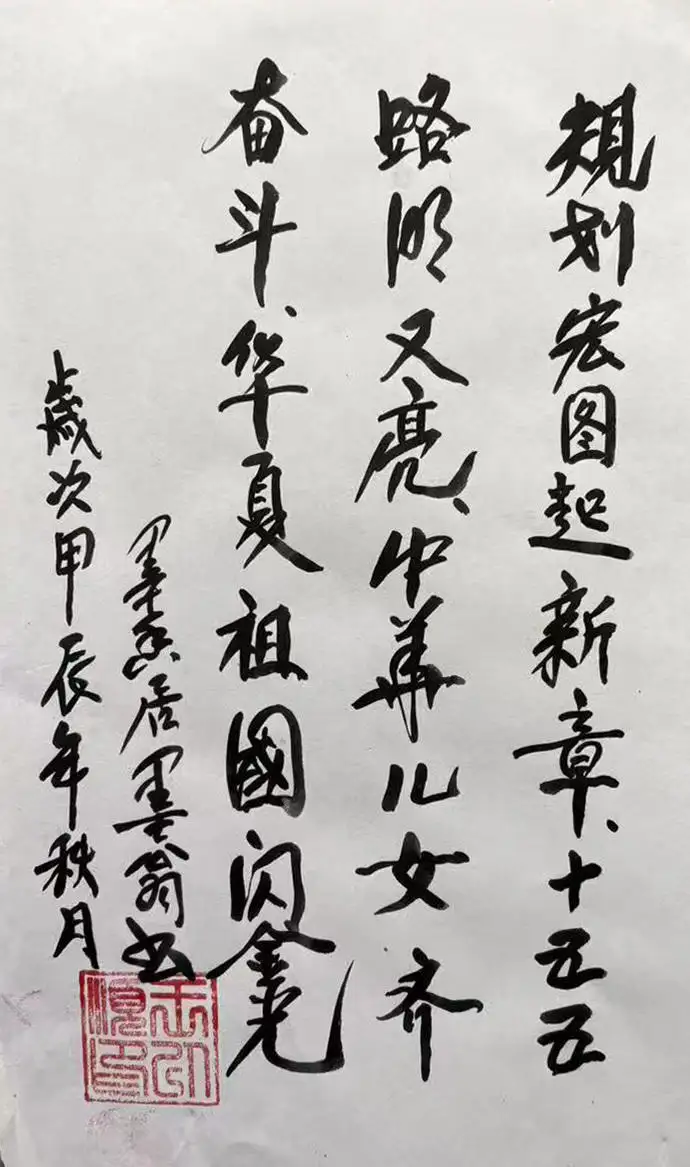 规划宏图起新章、十五五
路明又亮、中華儿女齐
奋斗、华夏祖國闪金光
歲次甲辰年秋月
墨香居墨翁书